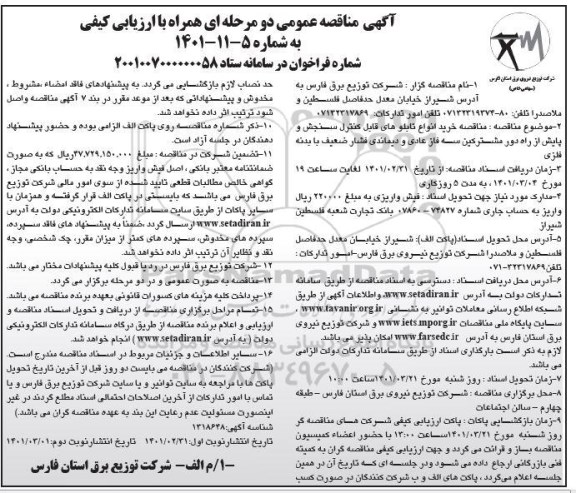 آگهی مناقصه عمومی دو مرحله ای همراه با ارزیابی کیفی
به شماره ۵-۱۱-۱۴۰۱
شماره فراخوان در سامانه ستاد ۲۰۰۱۰۰۷۰۰۰۰۰۰۰۵۸
شرکت توزیع نیروی برق استان فارس
(سهامی خاص)
۱-نام مناقصه گزار : شرکت توزیع برق فارس به
آدرس شیراز خیابان معدل حدفاصل فلسطین و
ملاصدرا تلفن: ۸۰-۰۷۱۳۲۳۱۹۳۷۴ تلفن امور تدارکات: ۰۷۱۳۲۳۱۷۸۶۹
۲-موضوع مناقصه : مناقصه خرید انواع تابلو های قابل کنترل سنجش و
پایش از راه دور مشترکین سه فاز عادی و دیماندی فشار ضعیف با بدنه
فلزی
۳-زمان دریافت اسناد مناقصه: از تاریخ ۱۴۰۱/۰۲/۳۱ لغایت ساعت ۱۹
مورخ ۱۴۰۱/۰۳/۰۴ به مدت ۵ روزکاری
۴-مدارک مورد نیاز جهت تحویل اسناد: فیش واریزی به مبلغ ۲۲۰۰۰۰ ریال
واریز به حساب جاری شماره ۷۳۸۲۷-۰۷۸۶۰ بانک تجارت شعبه فلسطین
شیراز
۵-آدرس محل تحویل اسناد(پاکت الف): شیراز خیابان معدل حدفاصل
فلسطین و ملاصدرا شرکت توزیع نیروی برق فارس-امور تدارکات :
تلفن ۳۲۳۱۷۸۶۹-۰۷۱
۶-آدرس محل دریافت اسناد : دسترسی به اسناد مناقصه از طریق سامانه
تدارکات دولت به آدرس www.setadiran.ir واطلاعات آگهی از طریق
شبکه اطلاع رسانی معاملات توانیر به نشانی www.tavanir.org.ir ،
سایت پایگاه ملی مناقصات www.iets.mporg.ir و شرکت توزیع نیروی
برق استان فارس به آدرس www.farsedc.ir امکان پذیر می باشد.
لازم به ذکر است بارگذاری اسناد از طریق سامانه تدارکات دولت الزامی
می باشد.
۷-زمان تحویل اسناد : روز شنبه مورخ ۱۴۰۱/۰۳/۲۱ ساعت ۱۰:۰۰
۸-محل برگزاری مناقصه : شرکت توزیع نیروی برق استان فارس - طبقه
چهارم - سالن اجتماعات
۹-زمان بازگشایی پاکات : پاکت ارزیابی کیفی شرکت های مناقصه گر
روز شنبه مورخ ۱۴۰۱/۰۳/۲۱ ساعت ۱۳:۰۰ با حضور اعضاء کمیسیون
مناقصه باز و قرائت می گردد و جهت ارزیابی کیفی مناقصه گران به کمیته
فنی بازرگانی ارجاع داده می شود ودر جلسه ای که تاریخ آن در همین
جلسه اعلام میگردد، پاکت های الف و ب شرکت کنندگان در صورت کسب
حد نصاب لازم بازگشایی می گردد. به پیشنهادهای فاقد امضاء ،مشروط ،
مخدوش و پیشنهاداتی که بعد از موعد مقرر در بند ۷ آگهی مناقصه واصل
شود ترتیب اثر داده نخواهد شد.
۱۰-ذکر شماره مناقصه روی پاکت الف الزامی بوده و حضور پیشنهاد
دهندگان در جلسه آزاد است.
۱۱-تضمین شرکت در مناقصه : مبلغ ۴۷,۷۲۹,۱۵۰,۰۰۰ریال که به صورت
ضمانتنامه معتبر بانکی ، اصل فیش واریز وجه نقد به حساب بانکی مجاز ،
گواهی خالص مطالبات قطعی تایید شده از سوی امور مالی شرکت توزیع
برق فارس می باشد که بایستی در پاکت الف قرار گرفته و همزمان با
سایر پاکات از طریق سایت سامانه تدارکات الکترونیکی دولت به آدرس
www.setadiran.ir ارسال گردد ،ضمناً به پیشنهاد های فاقد سپرده،
سپرده های مخدوش، سپرده های کمتر از میزان مقرر، چک شخصی، وجه
نقد و نظایر آن ترتیب اثر داده نخواهد شد.
۱۲-شرکت توزیع برق فارس در رد یا قبول کلیه پیشنهادات مختار می باشد.
۱۳-مناقصه به صورت عمومی و در دو مرحله برگزار می گردد.
۱۴-پرداخت کلیه هزینه های کسورات قانونی بعهده برنده مناقصه می باشد.
۱۵-تمام مراحل برگزاری مناقصه از دریافت و تحویل اسناد مناقصه و
ارزیابی و اعلام برنده مناقصه از طریق درگاه سامانه تدارکات الکترونیکی
دولت ( به آدرس www.setadiran.ir ) انجام خواهد شد.
۱۶-سایر اطلاعات و جزئیات مربوط در اسناد مناقصه مندرج است.
(شرکت کنندگان در مناقصه می بایست دو روز قبل از آخرین تاریخ تحویل
پاکت ها با مراجعه به سایت توانیر و یا سایت شرکت توزیع برق فارس و یا
تماس با امور تدارکات از آخرین اصلاحات احتمالی اسناد مطلع گردند در غیر
اینصورت مسئولیت عدم رعایت این بند به عهده مناقصه گران می باشد.)
شناسه آگهی:۱۳۱۸۶۴۸
تاریخ انتشارنوبت اول: ۱۴۰۱/۰۲/۳۱ تاریخ انتشارنوبت دوم: ۱۴۰۱/۰۳/۰۱
۱/م الف- شرکت توزیع برق استان فارس